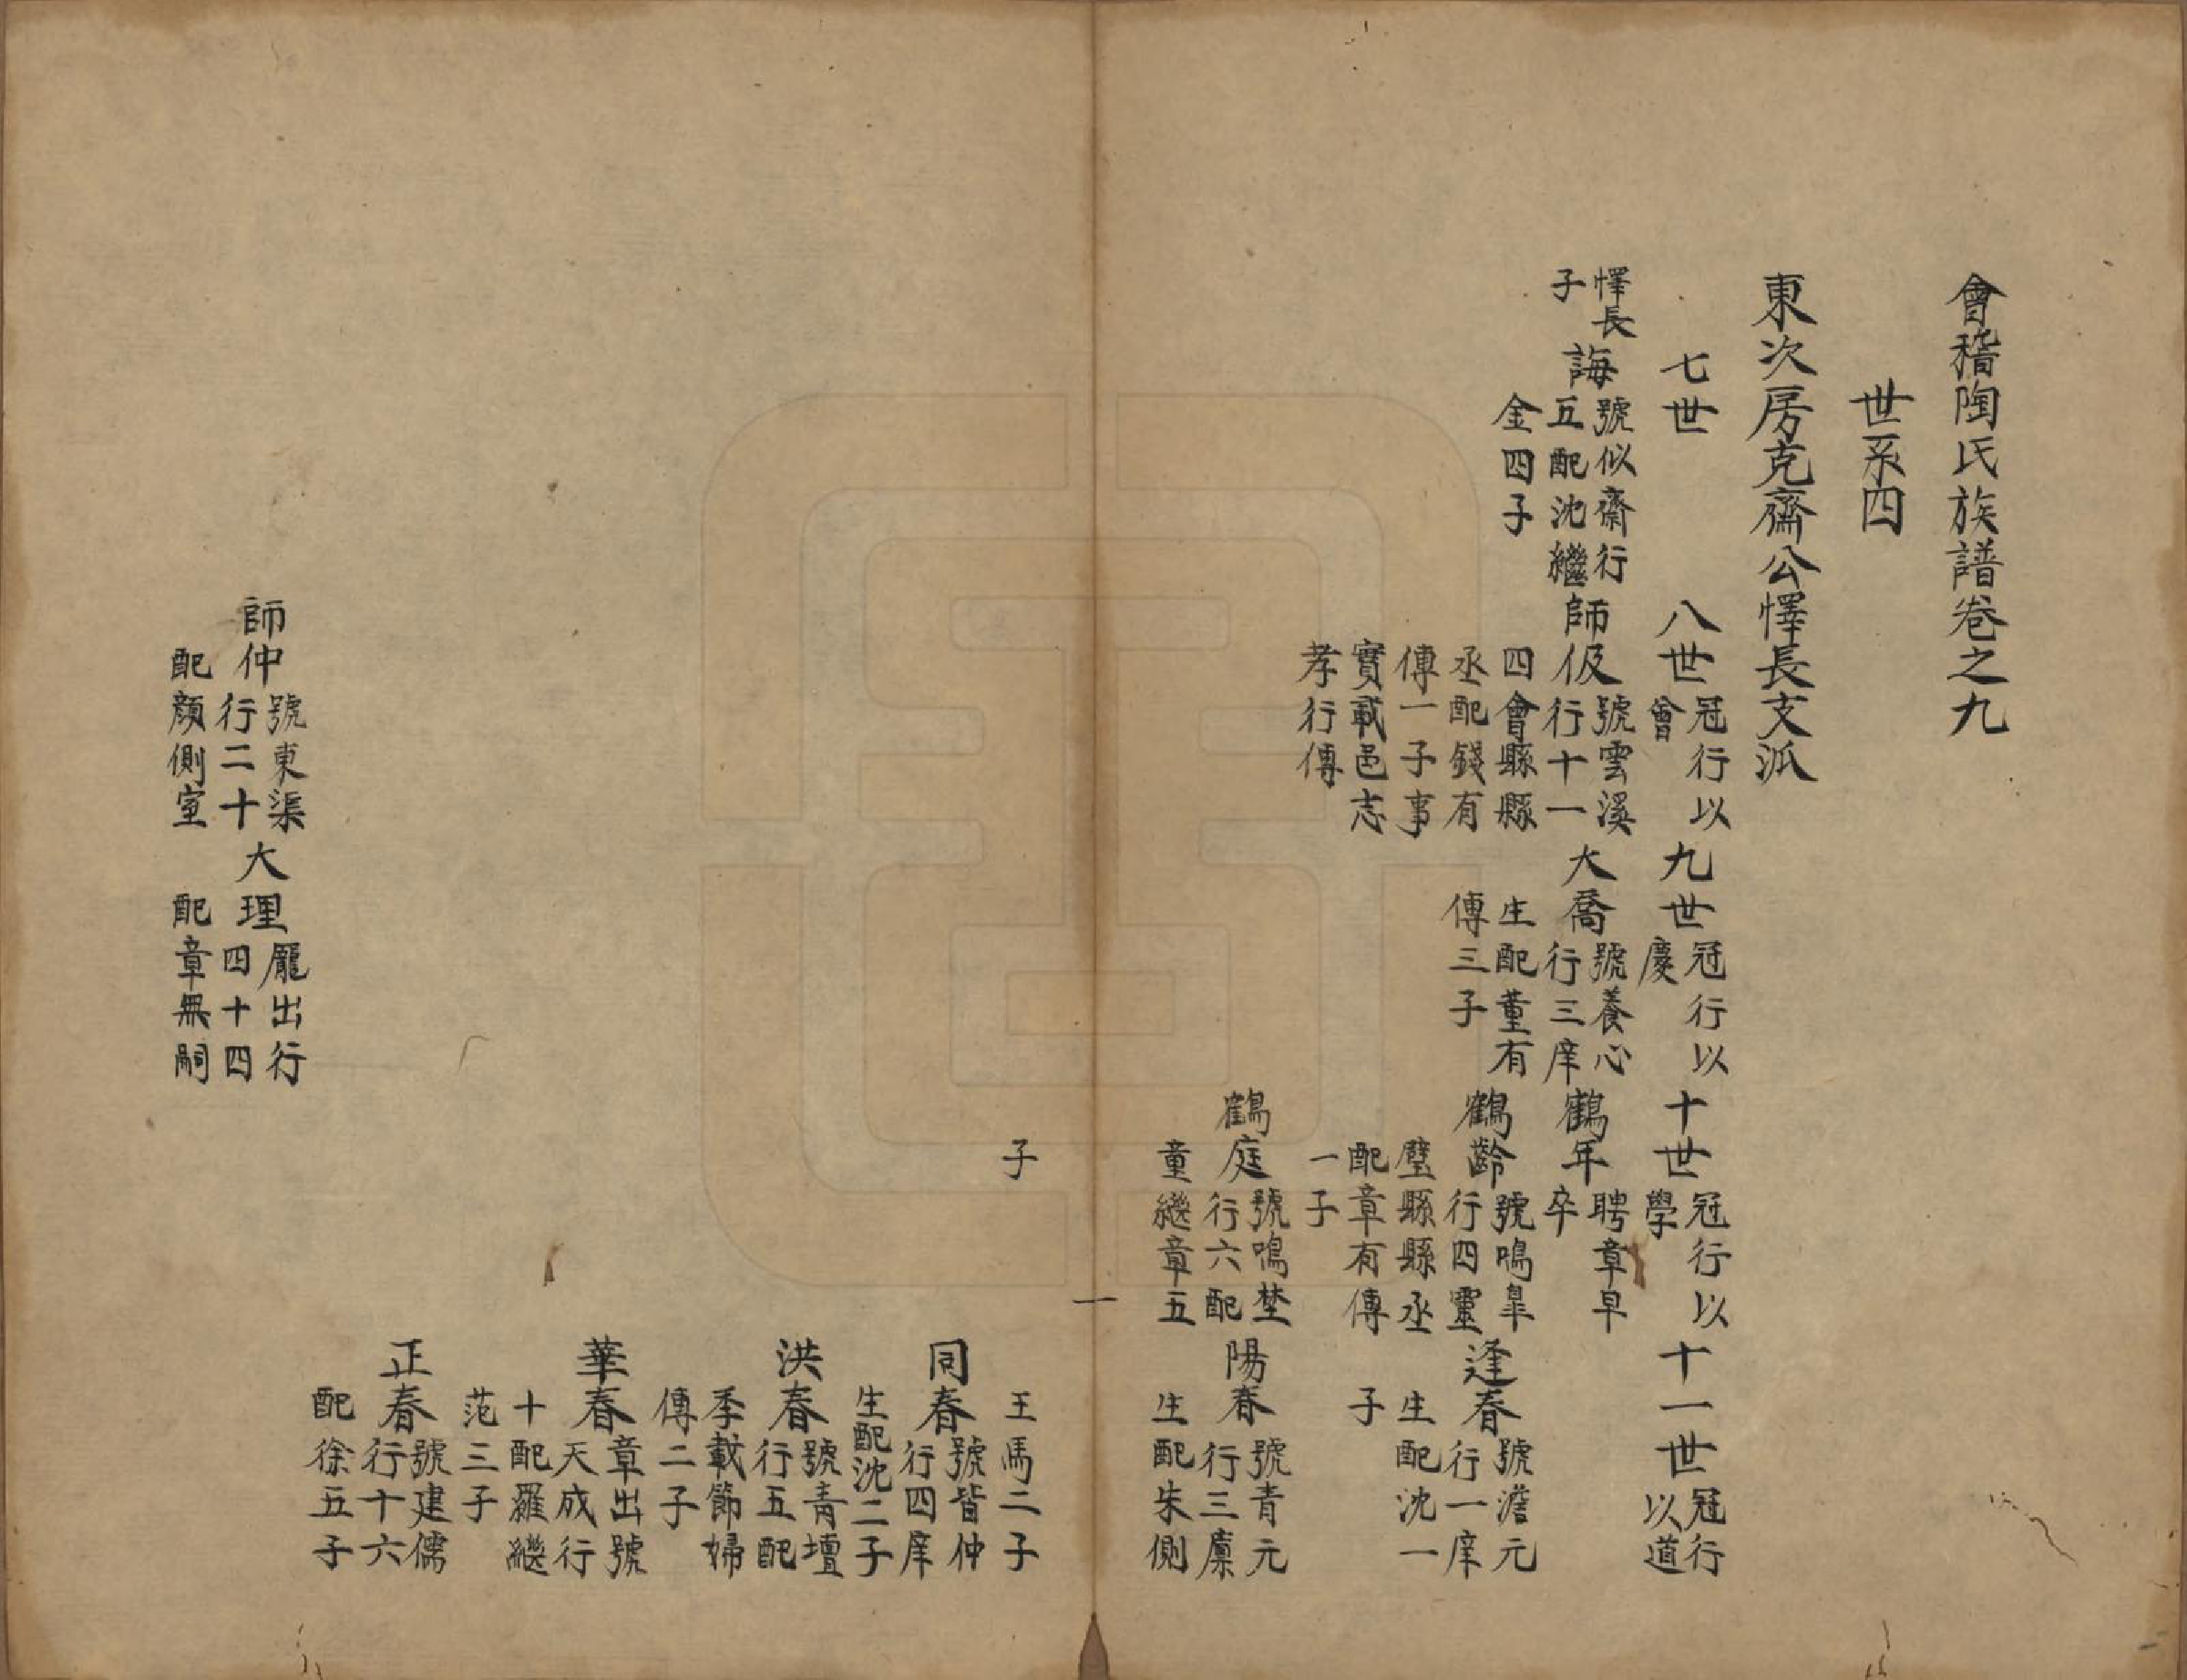 會稽陶氏族譜卷之九
世系四
東次房克齋公懌長支派
七世
八世冠行以會
九世冠行以慶
十世冠行以學
十一世冠行以道
懌長子
誨號似齋行五配沈繼金四子
師伋號雲溪行十一四會縣縣丞配錢有傳一子事實載邑志孝行傳
大喬號養心行三庠生配董有傳三子
鶴年聘章早卒
鶴齡號鳴臯行四靈璧縣縣丞配章有傳一子
逢春號澹元行一庠生配沈一子
鶴庭號鳴埜行六配童繼章五子
陽春號青元行三廩生配朱側王馬二子
同春號皆仲行四庠生配沈二子
洪春號青壇行五配季載節婦傳二子
華春章出號天成行十配羅繼范三子
正春號建儒行十六配徐五子
師仲號東渠行二十配顏側室
大理龐出行四十四配章無嗣
一